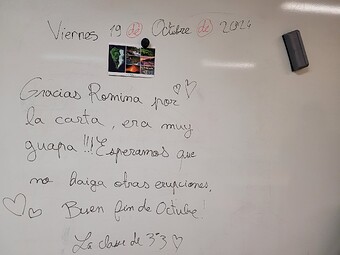 Viernes 19 de Octubre de 2024
Gracias Romina por
la carta, era muy
guapa !!! Esperamos que
no haiga otras erupciones.
Buen fin de Octubre!
La clase de 3°3